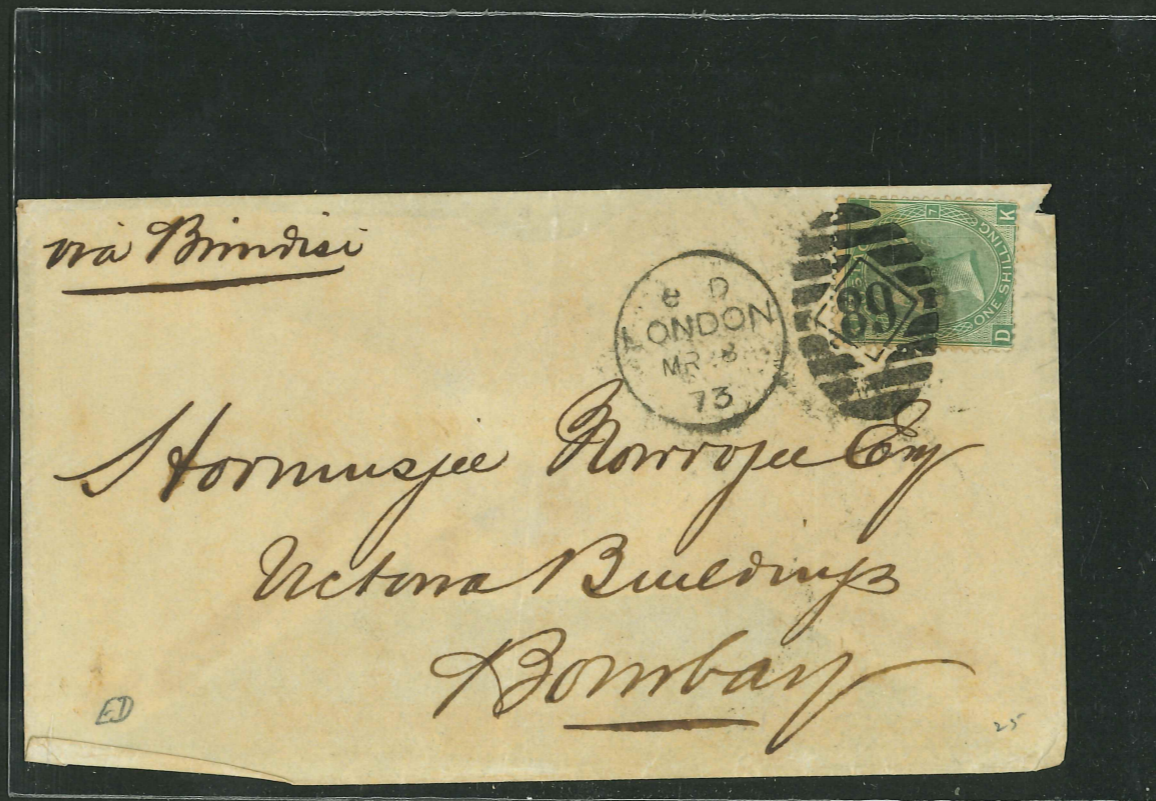 via Brindisi
8 D
LONDON
MR 8
73
89
7
K
ONE SHILLING
D
Hormusjee Nowrojee Esq
Victoria Buildings
Bombay
25